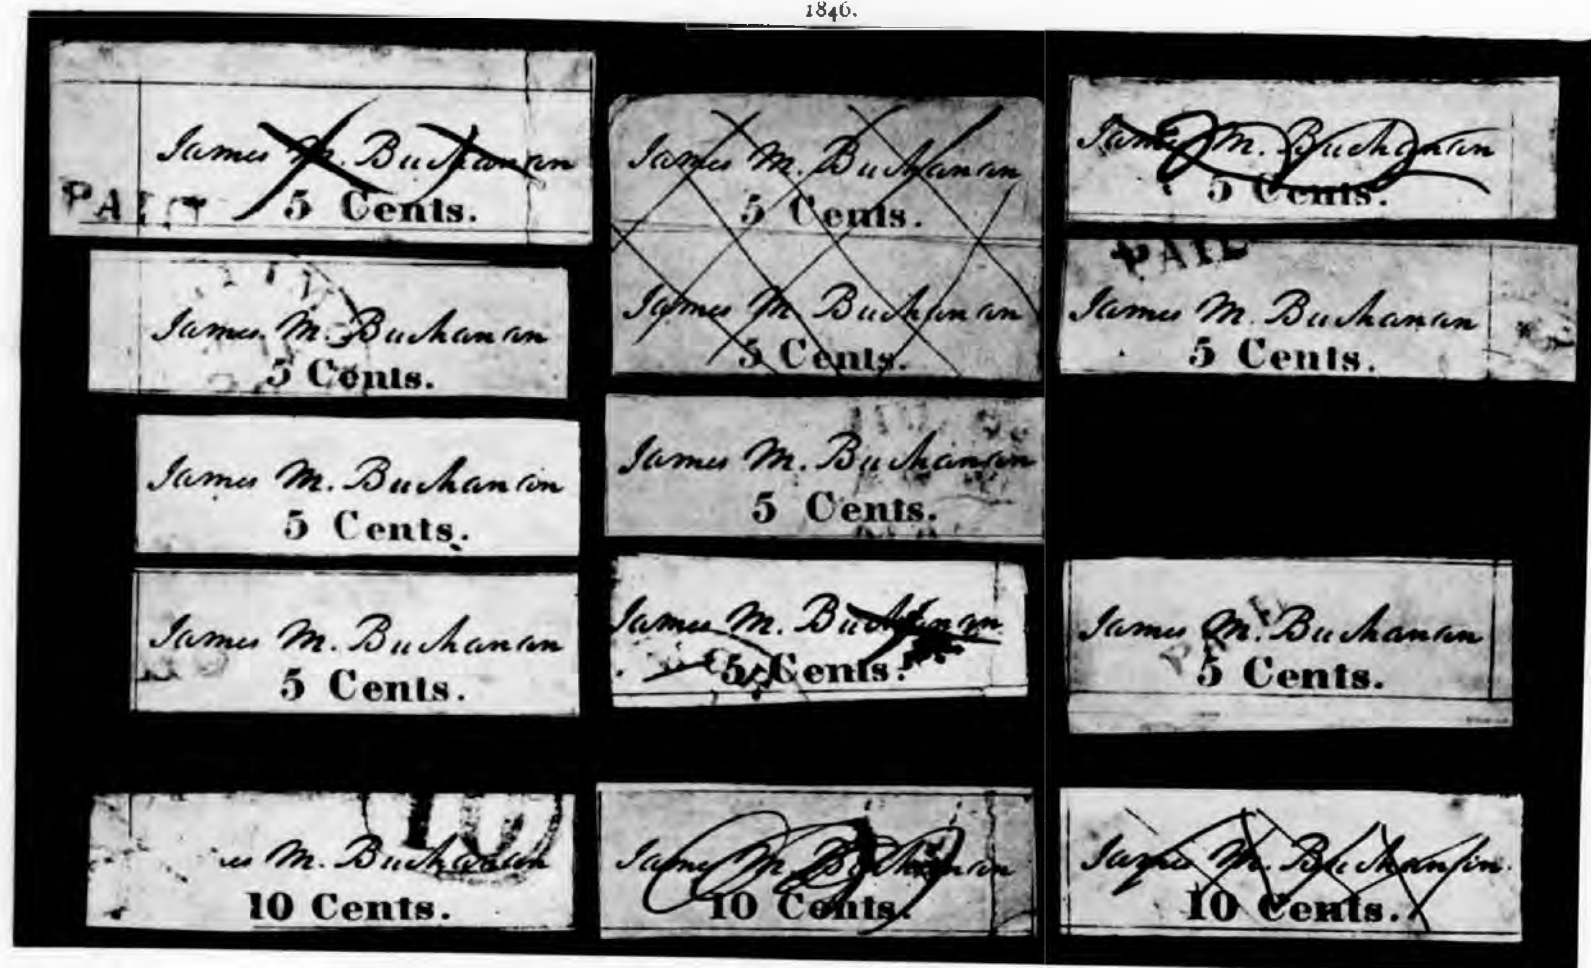 1846.
James M. Buchanan
PAID
5 Cents.
James M. Buchanan
5 Cents.
James M. Buchanan
5 Cents.
James M. Buchanan
5 Cents.
10
M. Buchanan
10 Cents.
James M. Buchanan
5 Cents.
James M. Buchanan
5 Cents.
James M. Buchanan
5 Cents.
James M. Buchanan
5 Cents.
James M. Buchanan
10 Cents.
James M. Buchanan
5 Cents.
PAID
James M. Buchanan
5 Cents.
James M. Buchanan
5 Cents.
James M. Buchanan
10 Cents.